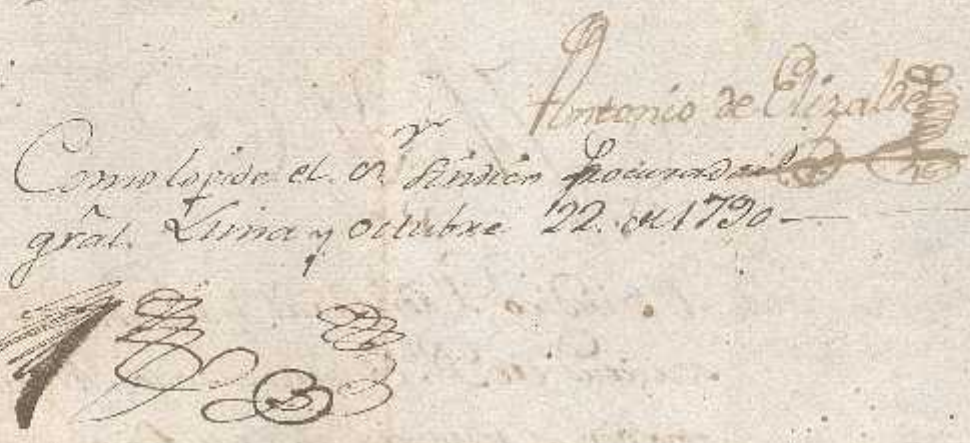 Antonio de Elizalde
Como lo pide el Sr. Sindico Procurador
gral. Lima y octubre 22. de 1790